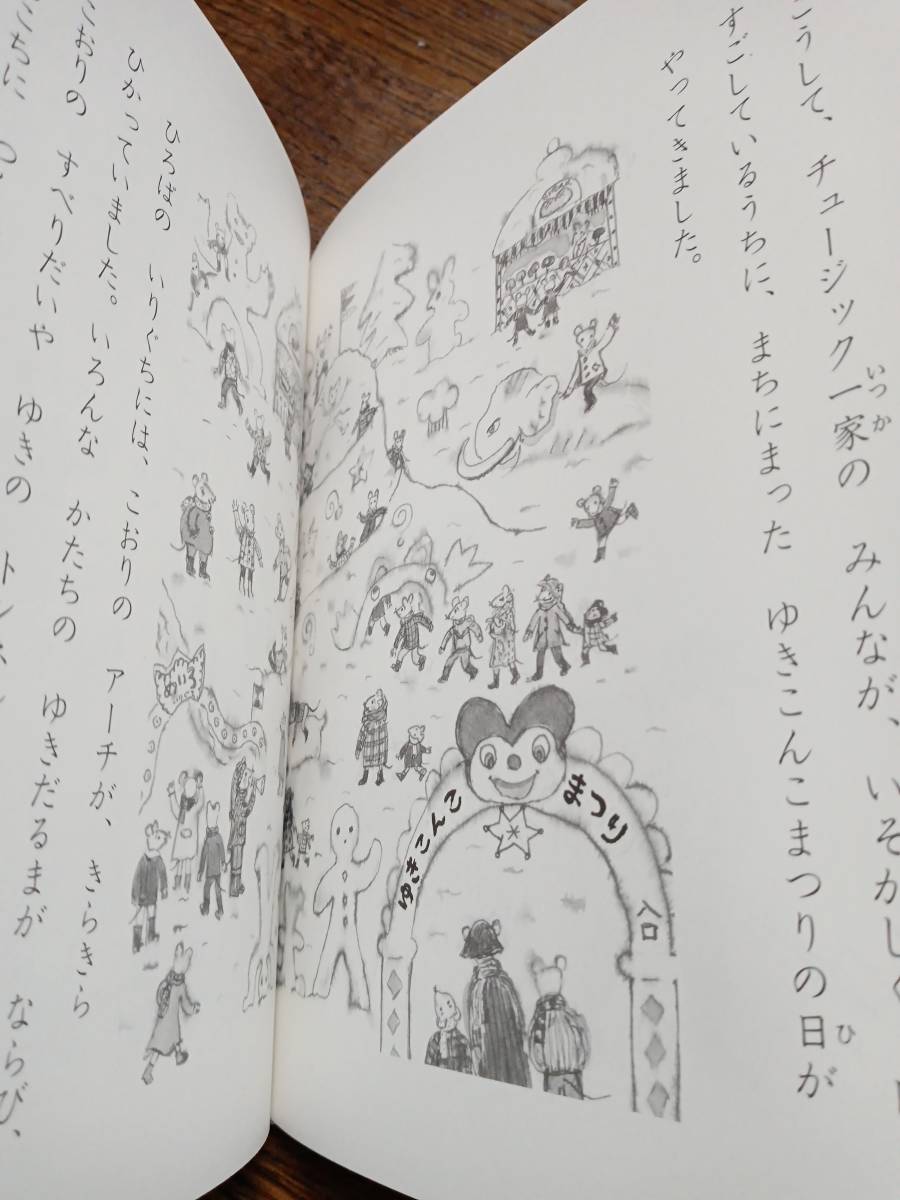 こうして、チュージック一家の　みんなが、いそがしく
いっか
すごしているうちに、まちにまった　ゆきこんこまつりの日が
ひ
やってきました。
ゆきこんこ
まつり
入口
めいろ
ひろばの　いりぐちには、こおりの　アーチが、きらきら
ひかっていました。いろんな　かたちの　ゆきだるまが　ならび、
こおりの　すべりだいや　ゆきの